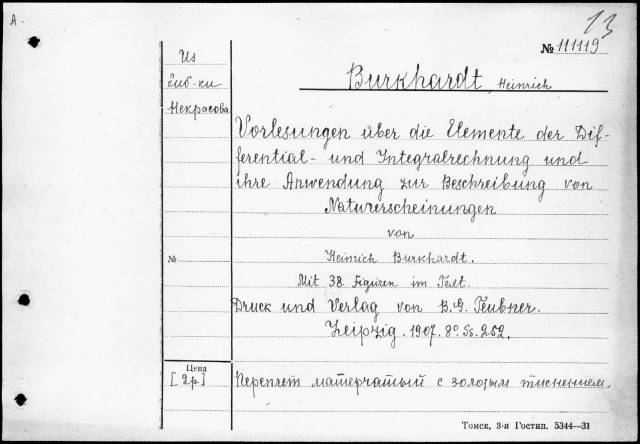 A.
13
№ 111119
Из
биб-ки
Некрасова
Burkhardt, Heinrich
Vorlesungen über die Elemente der Dif-
ferential- und Integralrechnung und
ihre Anwendung zur Beschreibung von
Naturerscheinungen
von
Heinrich Burkhardt.
№
Mit 38. Figuren im Text.
Druck und Verlag von B. G. Teubner.
Leipzig. 1907. 8° Ss. 252.
Цена
[2р.]
Переплет матерчатый с золотым тиснением.
Томск, 3-я Гостип. 5344—31